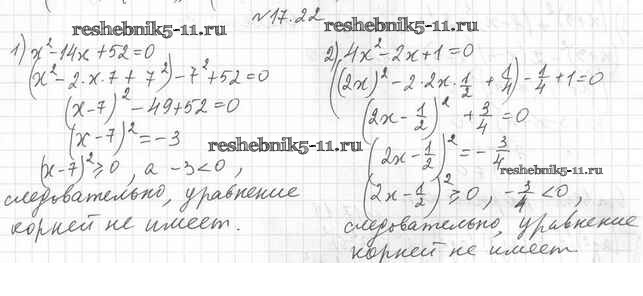 №17.22
reshebnik5-11.ru
reshebnik5-11.ru
1) x²-14x+52=0
(x²-2·x·7+7²)-7²+52=0
(x-7)²-49+52=0
(x-7)²=-3
(x-7)²≥0, а -3<0,
следовательно, уравнение
корней не имеет.
reshebnik5-11.ru
2) 4x²-2x+1=0
((2x)²-2·2x·1/2+1/4)-1/4+1=0
(2x-1/2)²+3/4=0
(2x-1/2)²=-3/4
reshebnik5-11.ru
(2x-1/2)²≥0, -3/4<0,
следовательно, уравнение
корней не имеет.